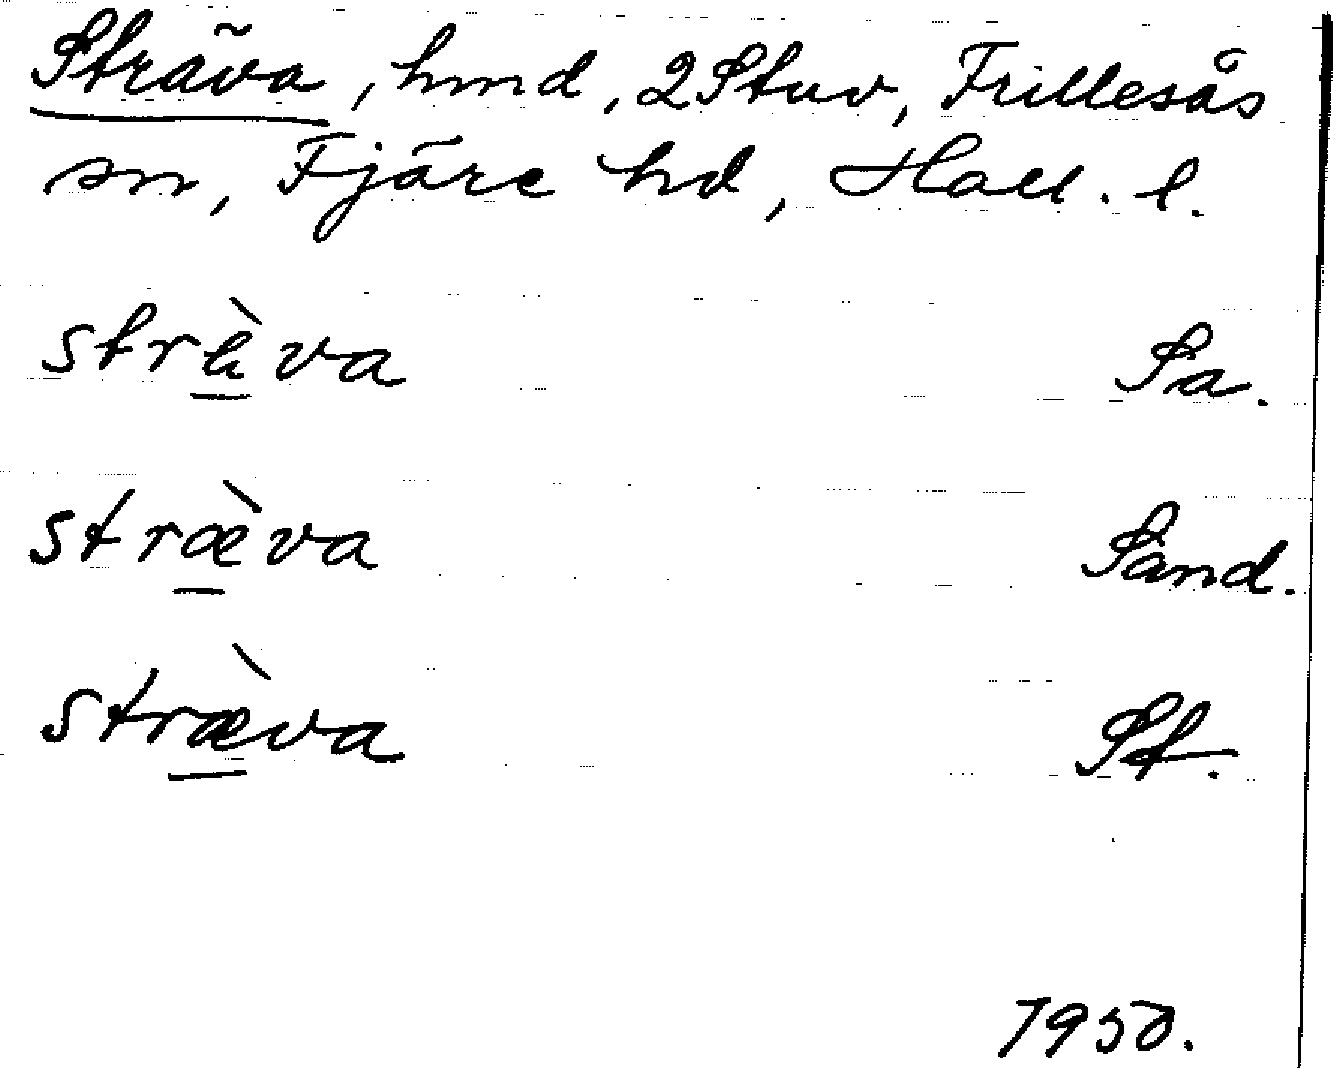 Sträva, hmd, 2Stuv, Frillesås
sn, Fjäre hd, Hall. l.
strä̀va Sa.
stræ̀va Sand.
stræ̀va Sf.
1950.